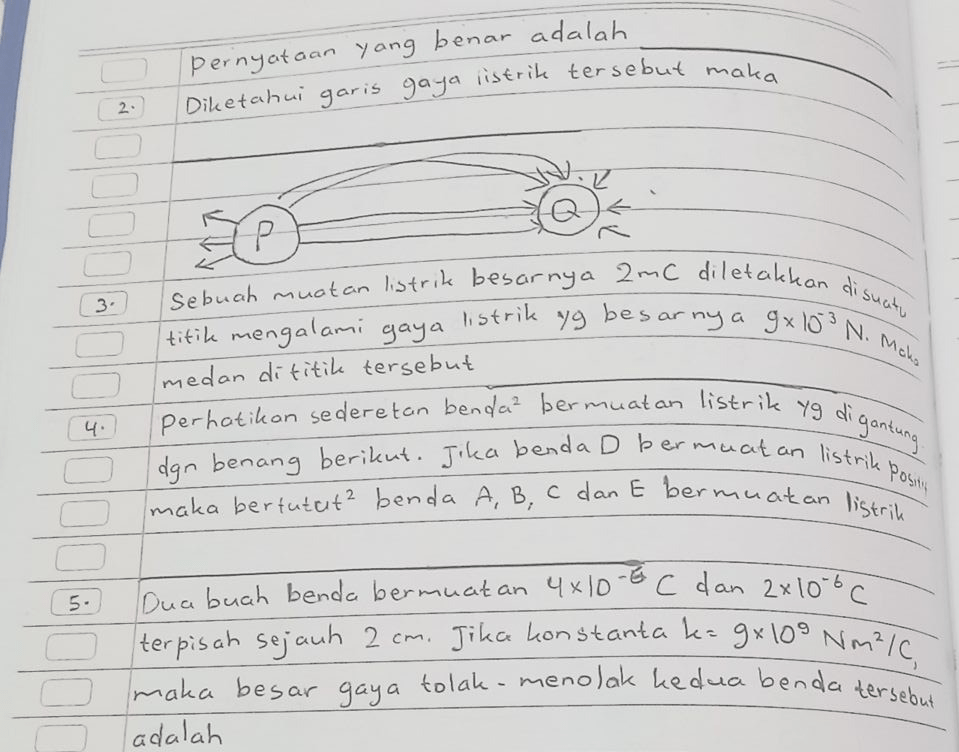 Pernyataan yang benar adalah
2. Diketahui garis gaya listrik tersebut maka
P Q
3. Sebuah muatan listrik besarnya 2mC diletakkan disuatu
titik mengalami gaya listrik yg besarnya 9×10⁻³ N. Maka
medan dititik tersebut
4. Perhatikan sederetan benda² bermuatan listrik yg digantung
dgn benang berikut. Jika benda D bermuatan listrik positif
maka bertutut² benda A, B, C dan E bermuatan listrik
5. Dua buah benda bermuatan 4×10⁻⁶ C dan 2×10⁻⁶ C
terpisah sejauh 2 cm. Jika konstanta k= 9×10⁹ Nm²/C,
maka besar gaya tolak-menolak kedua benda tersebut
adalah